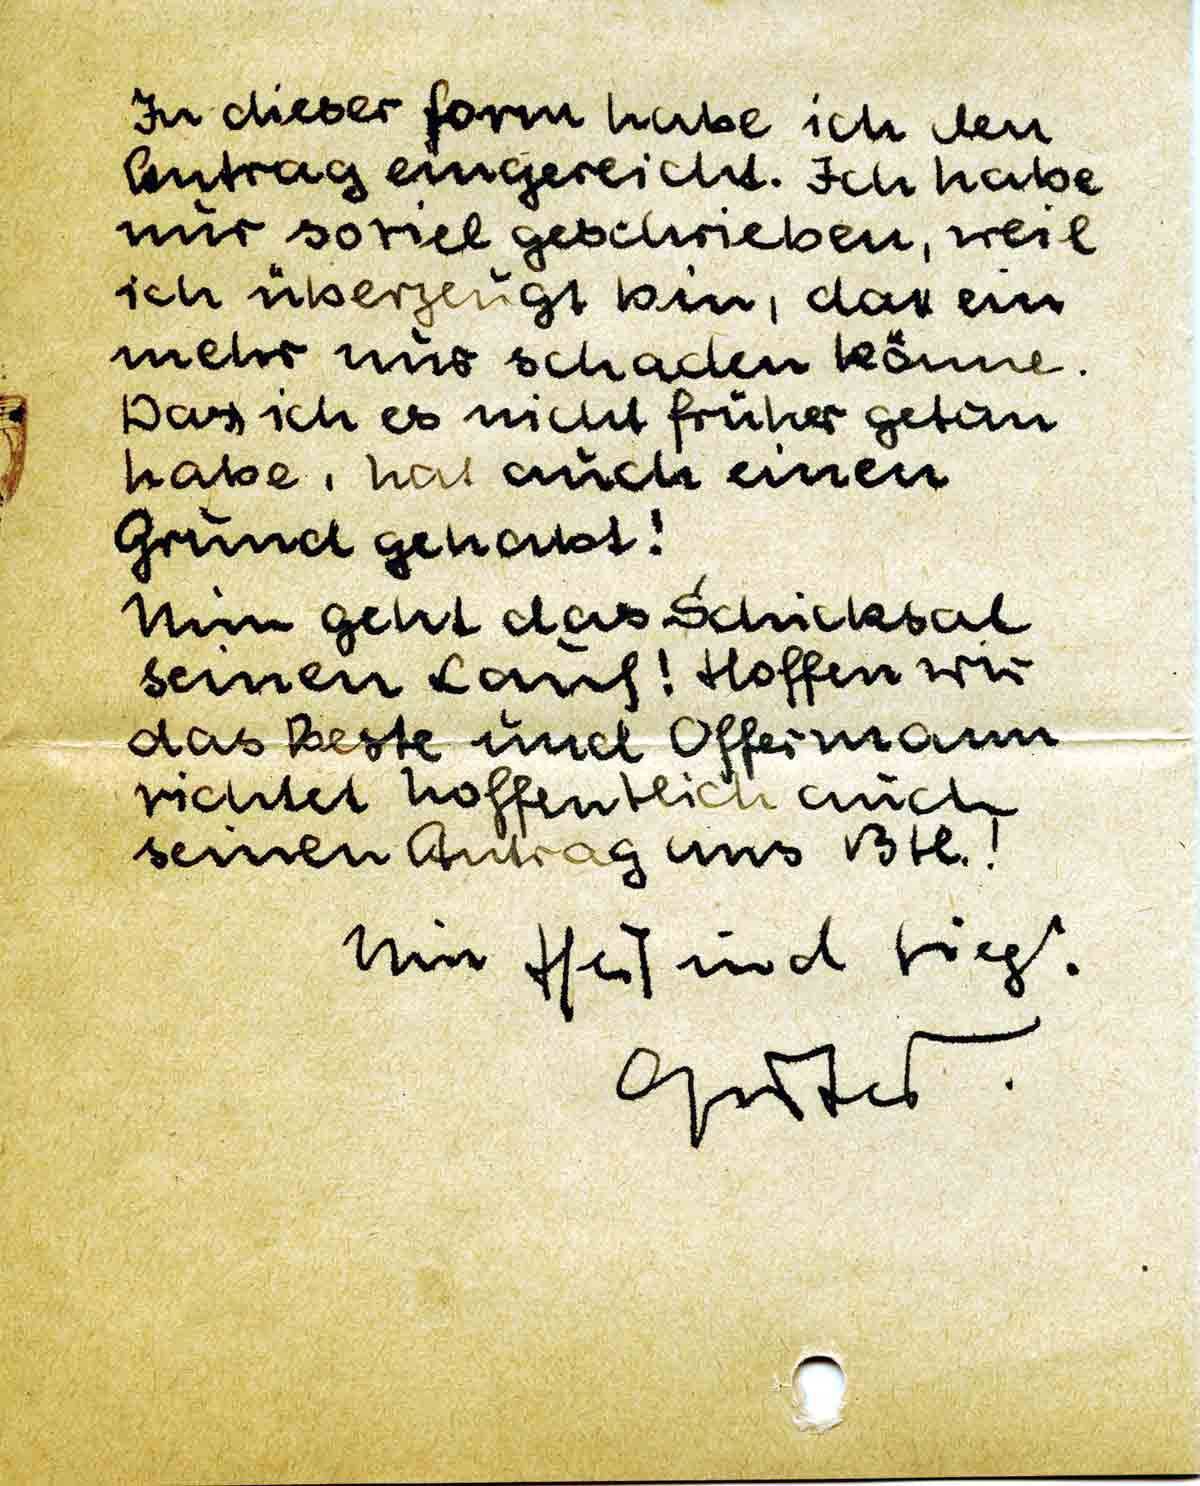 In dieser Form habe ich den
Antrag eingereicht. Ich habe
nur soviel geschrieben, weil
ich überzeugt bin, dass ein
mehr nur schaden könne.
Dass ich es nicht früher getan
habe, hat auch einen
Grund gehabt!
Nun geht das Schicksal
seinen Lauf! Hoffen wir
das Beste und Offermann
richtet hoffentlich auch
seinen Antrag ans Btl.!
Nun Heil und Sieg!